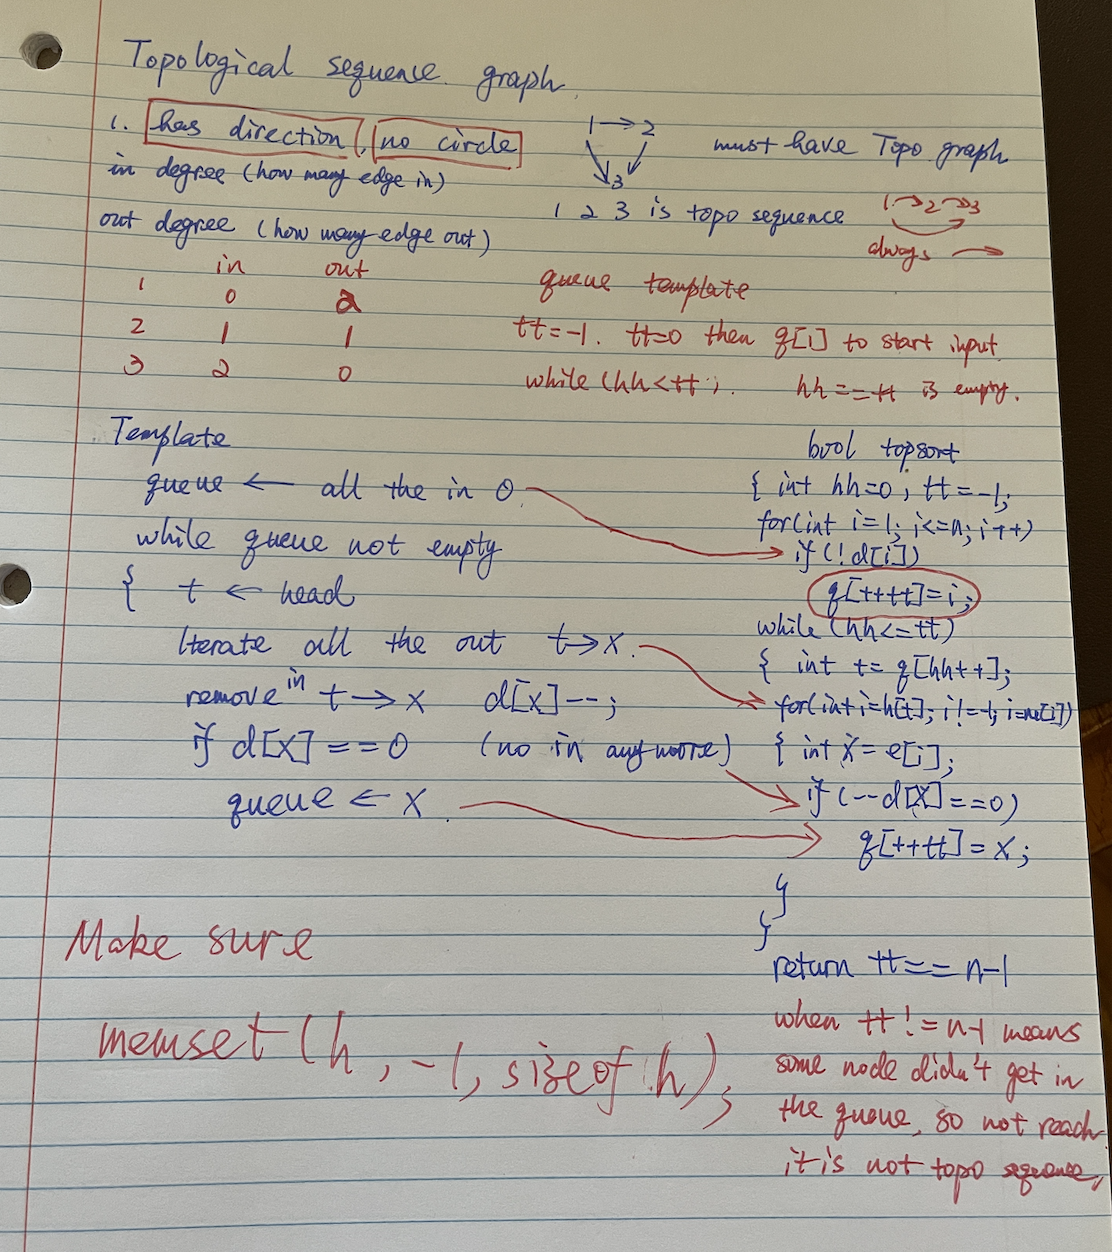 Topological sequence graph
1. has direction, no circle
in degree (how many edge in)
out degree (how many edge out)
1 → 2
3
must have Topo graph
1 2 3 is topo sequence
1 → 2 → 3
always →
in out
1 0 2
2 1 1
3 2 0
queue template
tt=-1. tt=0 then q[i] to start input
while (hh<tt). hh==tt is empty.
Template
queue ← all the in 0
while queue not empty
{ t ← head
Iterate all the out t→x.
remove in t→x d[x]--;
if d[x]==0 (no in anymore)
queue ← x
bool topsort
{ int hh=0, tt=-1;
for(int i=1; i<=n; i++)
if(!d[i])
q[++tt]=i;
while (hh<=tt)
{ int t= q[hh++];
for(int i=h[t]; i!=-1; i=ne[i])
{ int x=e[i];
if(--d[x]==0)
q[++tt]=x;
}
}
return tt==n-1
when tt!=n-1 means
some node didn't get in
the queue, so not reach
it is not topo sequence,
Make sure
memset(h, -1, sizeof h);